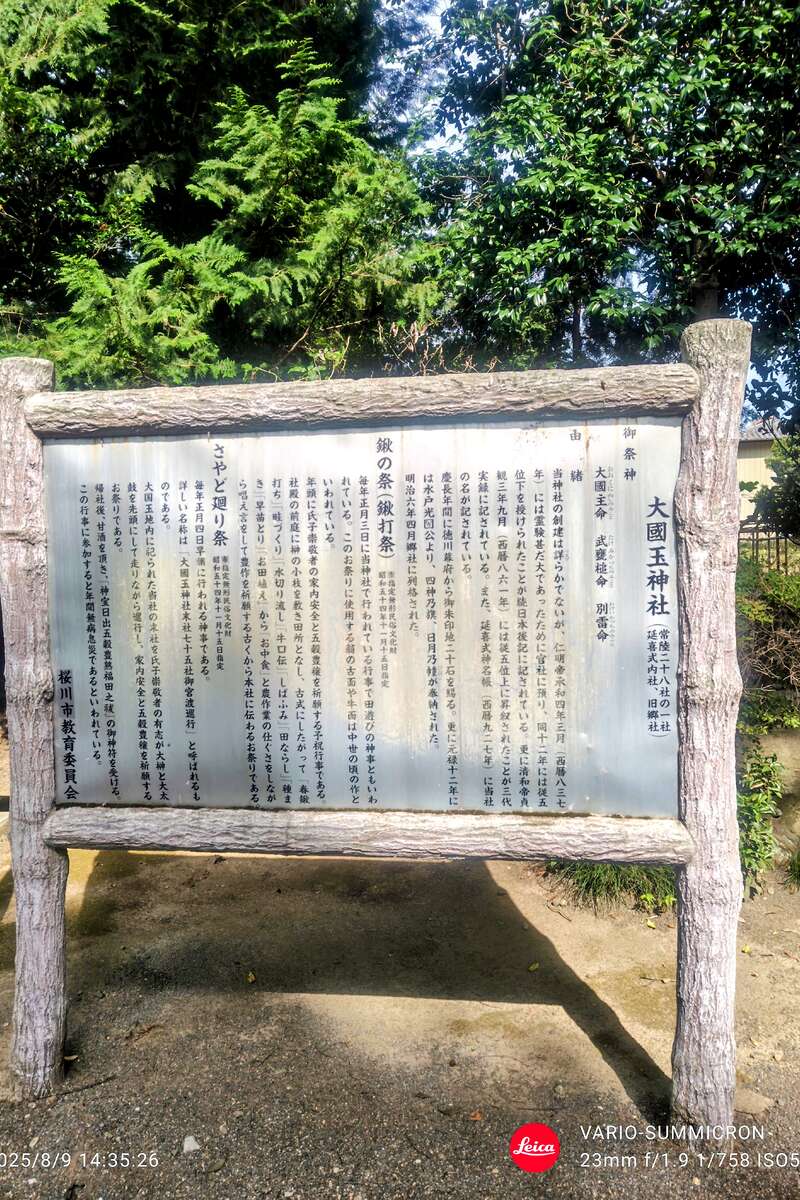 大國玉神社
常陸二十八社の一社
延喜式内社、旧郷社
御祭神
大國主命 武甕槌命 別雷命
由緒
当神社の創建は詳らかでないが、仁明帝承和四年三月(西暦八三七
年)には霊験甚だ大であったために官社に預り、同十二年には従五
位下を授けられたことが続日本後記に記されている。更に清和帝貞
観三年九月(西暦八六一年)には従五位上に昇叙されたことが三代
実録に記されている。また、延喜式神名帳(西暦九二七年)に当社
の名が記されている。
慶長年間に徳川幕府から御朱印地二十石を賜る。更に元禄十二年に
は水戸光圀公より、四神乃旗、日月乃幢が奉納された。
明治六年四月郷社に列格された。
鍬の祭(鍬打祭)
※指定無形民俗文化財
昭和五十四年十一月十五日指定
毎年正月三日に当神社で行われている行事で田遊びの神事ともいわ
れている。このお祭りに使用する翁の古面や牛面は中世の頃の作と
いわれている。
年頭に氏子崇敬者の家内安全と五穀豊穣を祈願する予祝行事である。
社殿の前庭に榊の小枝を敷き田所となし、古式にしたがって「春鍬
打ち」「畦づくり」「水切り流し」「牛口伝」「しばふみ」「田ならし」「種ま
き」「早苗とり」「お田植え」から「お中食」と農作業の仕ぐさをしなが
ら唱え言をして豊作を祈願する古くから本社に伝わるお祭りである。
さやど廻り祭
※指定無形民俗文化財
昭和五十四年十一月十五日指定
毎年正月四日早暁に行われる神事である。
詳しい名称は「大國玉神社末社七十五社御宮渡巡行」と呼ばれるも
のである。
大国玉地内に祀られた当社の末社を氏子崇敬者の有志が大榊と大太
鼓を先頭にして走りながら巡行し、家内安全と五穀豊穣を祈願する
お祭りである。
帰社後、甘酒を頂き、「神宝日出五穀豊熟福田之祓」の御神符を受ける。
この行事に参加すると年間無病息災であるといわれている。
桜川市教育委員会
025/8/9 14:35:26
Leica
VARIO-SUMMICRON
23mm f/1.9 1/758 ISO5